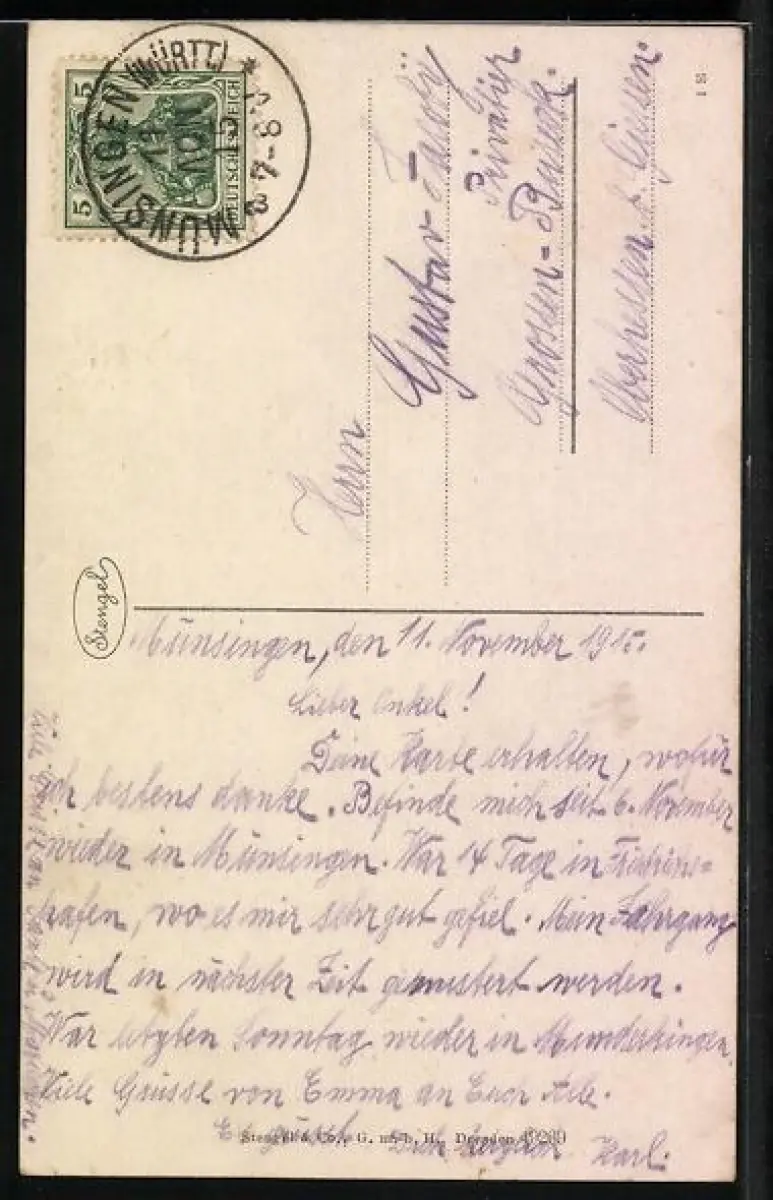 MÜNSINGEN (WÜRTT.)
13 NOV 15
* 7-8
5 5
DEUTSCHES REICH
18
Herrn
Gustav
Privatier
Grossen-Buseck.
Oberhessen. b. Giessen.
Stengel
Münsingen, den 11. November 1915.
Lieber Onkel!
Deine Karte erhalten, wofür
ich bestens danke. Befinde mich seit 6. November
wieder in Münsingen. War 14 Tage in Friedrichs=
hafen, wo es mir sehr gut gefiel. Mein Jahrgang
wird in nächster Zeit gemustert werden.
War letzten Sonntag wieder in Munderkingen.
Viele Grüsse von Emma an Euch Alle.
Es grüsst Dich herzlich Karl.
Viele Grüsse an
Stengel & Co., G. m. b. H., Dresden 49269